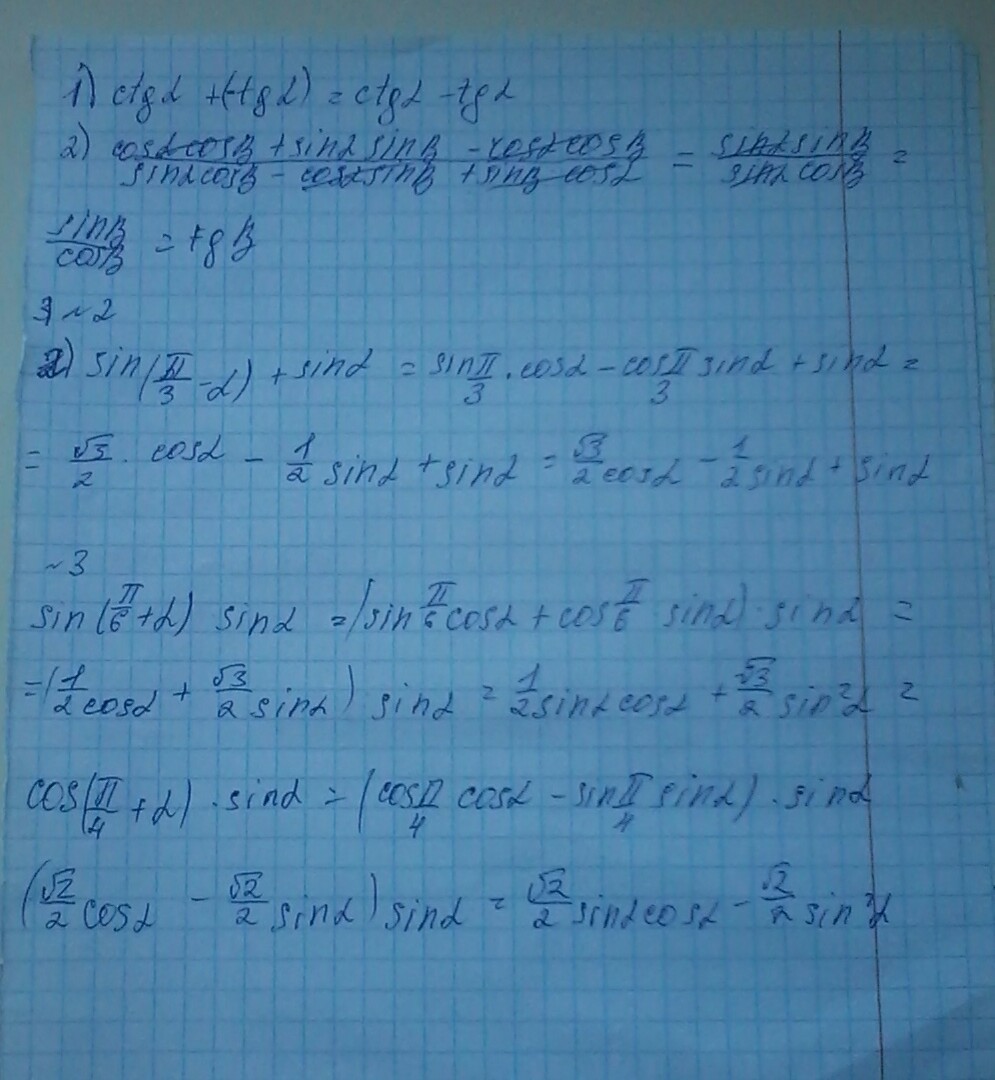 1) ctgα + (-tgα) = ctgα - tgα
2) (cosα cosβ + sinα sinβ - cosα cosβ)/(sinα cosβ - cosα sinβ + sinβ cosα) = (sinα sinβ)/(sinα cosβ) =
sinβ/cosβ = tgβ
~2
) sin(π/3 - α) + sinα = sin π/3 · cosα - cos π/3 sinα + sinα =
= √3/2 · cosα - 1/2 sinα + sinα = √3/2 cosα - 1/2 sinα + sinα
~3
sin(π/6 + α) sinα = (sin π/6 cosα + cos π/6 sinα) · sinα =
= (1/2 cosα + √3/2 sinα) sinα = 1/2 sinα cosα + √3/2 sin²α =
cos(π/4 + α) · sinα = (cos π/4 cosα - sin π/4 sinα) · sinα
(√2/2 cosα - √2/2 sinα) sinα = √2/2 sinα cosα - √2/2 sin²α